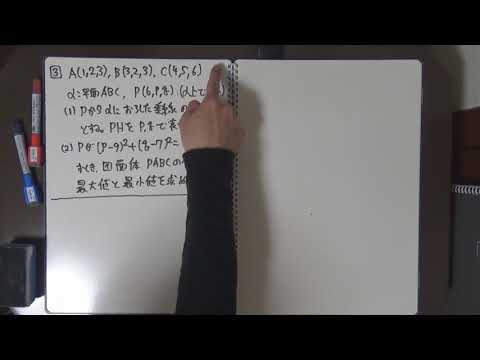 3 A(1,2,3), B(3,2,3), C(4,5,6)
α:平面ABC, P(6,p,q) (α上で
(1) Pからαにおろした垂線の
とする。PHをp,qで表
(2) Pが(p-9)²+(q-7)²=
すとき, 四面体PABCの
最大値と最小値を求め